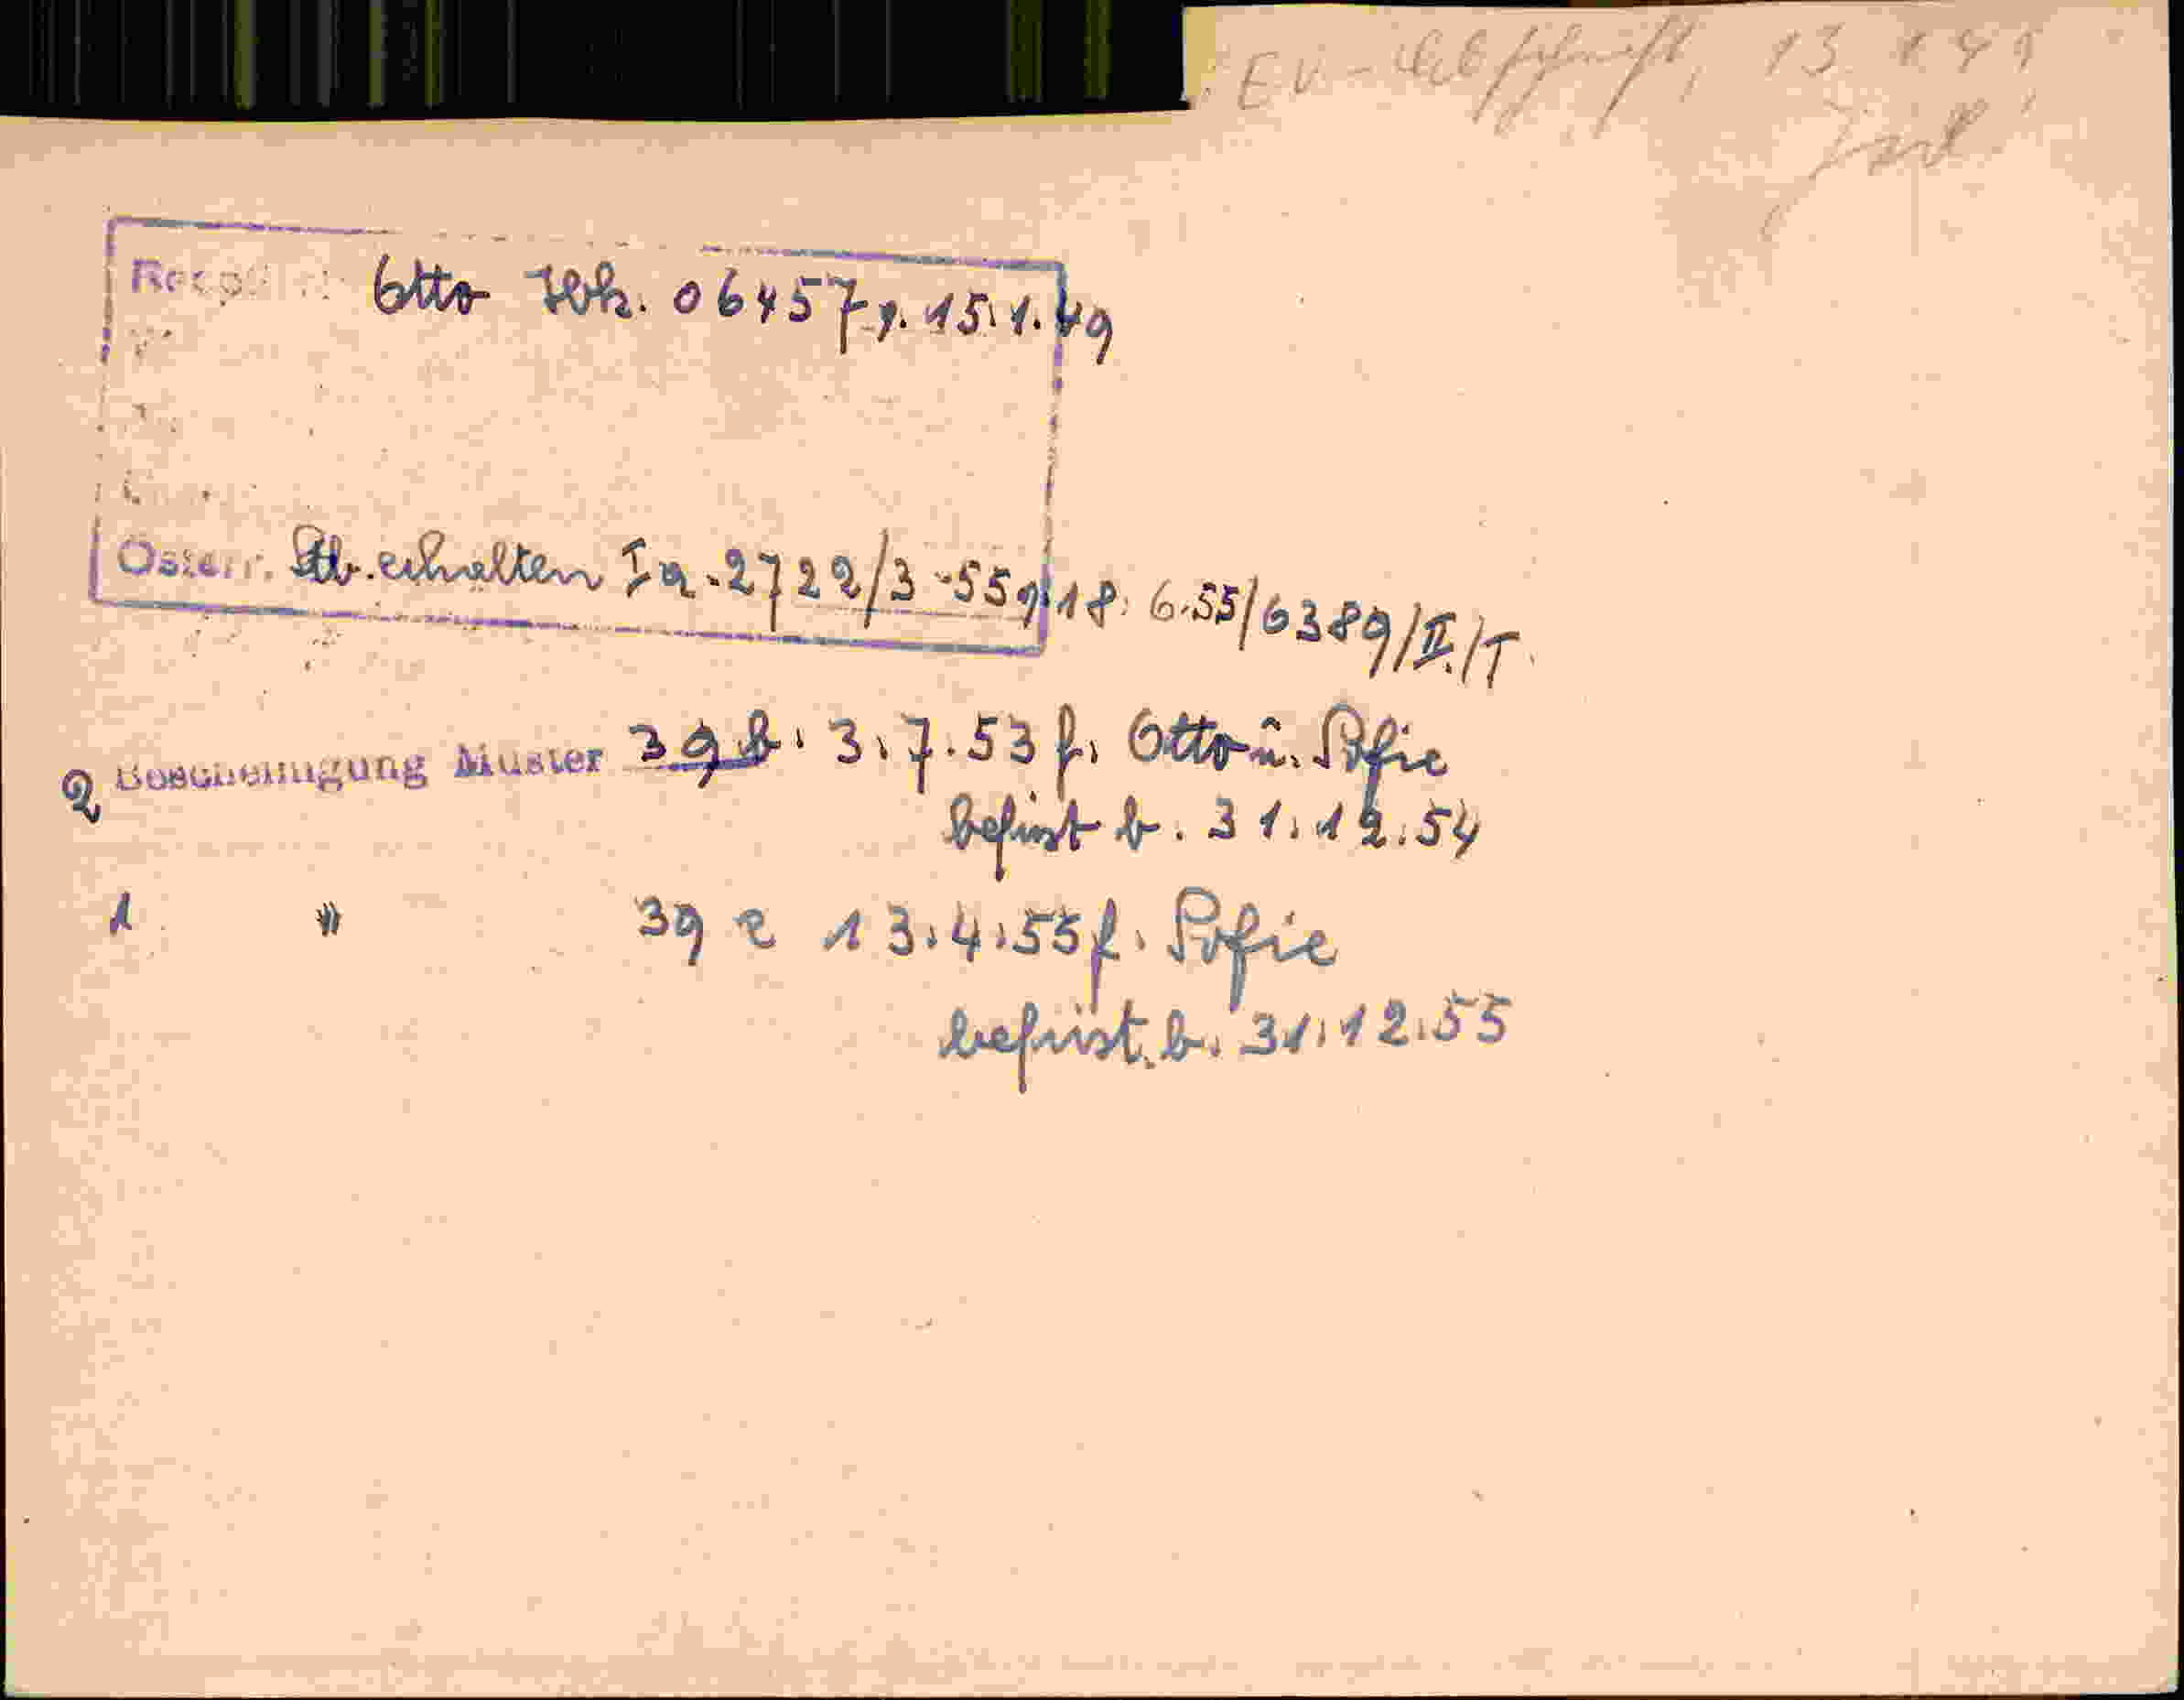 EV-Abschrift, 13 1 49
Otto Wk. 06457 v. 15.1.49
Österr. Stb. erhalten Ia-2722/3-55 v. 18.6.55/6389/II./T.
2 Bescheinigung Muster 39 b. 3.7.53 f. Otto u. Sofie
befrist b. 31.12.54
1 " 39 e 13.4.55 f. Sofie
befrist. b. 31.12.55